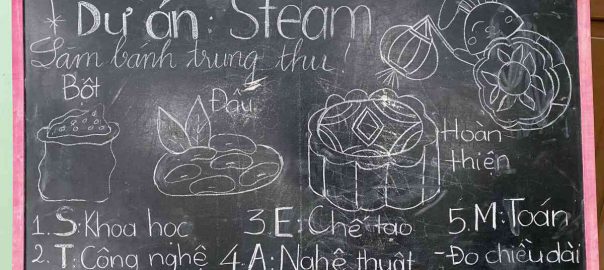 * Dự án: Steam
Làm bánh trung thu!
Bột
Đậu
Hoàn
thiện
1. S: Khoa học
2. T: Công nghệ
3. E: Chế tạo
4. A: Nghệ thuật
5. M: Toán
- Đo chiều dài